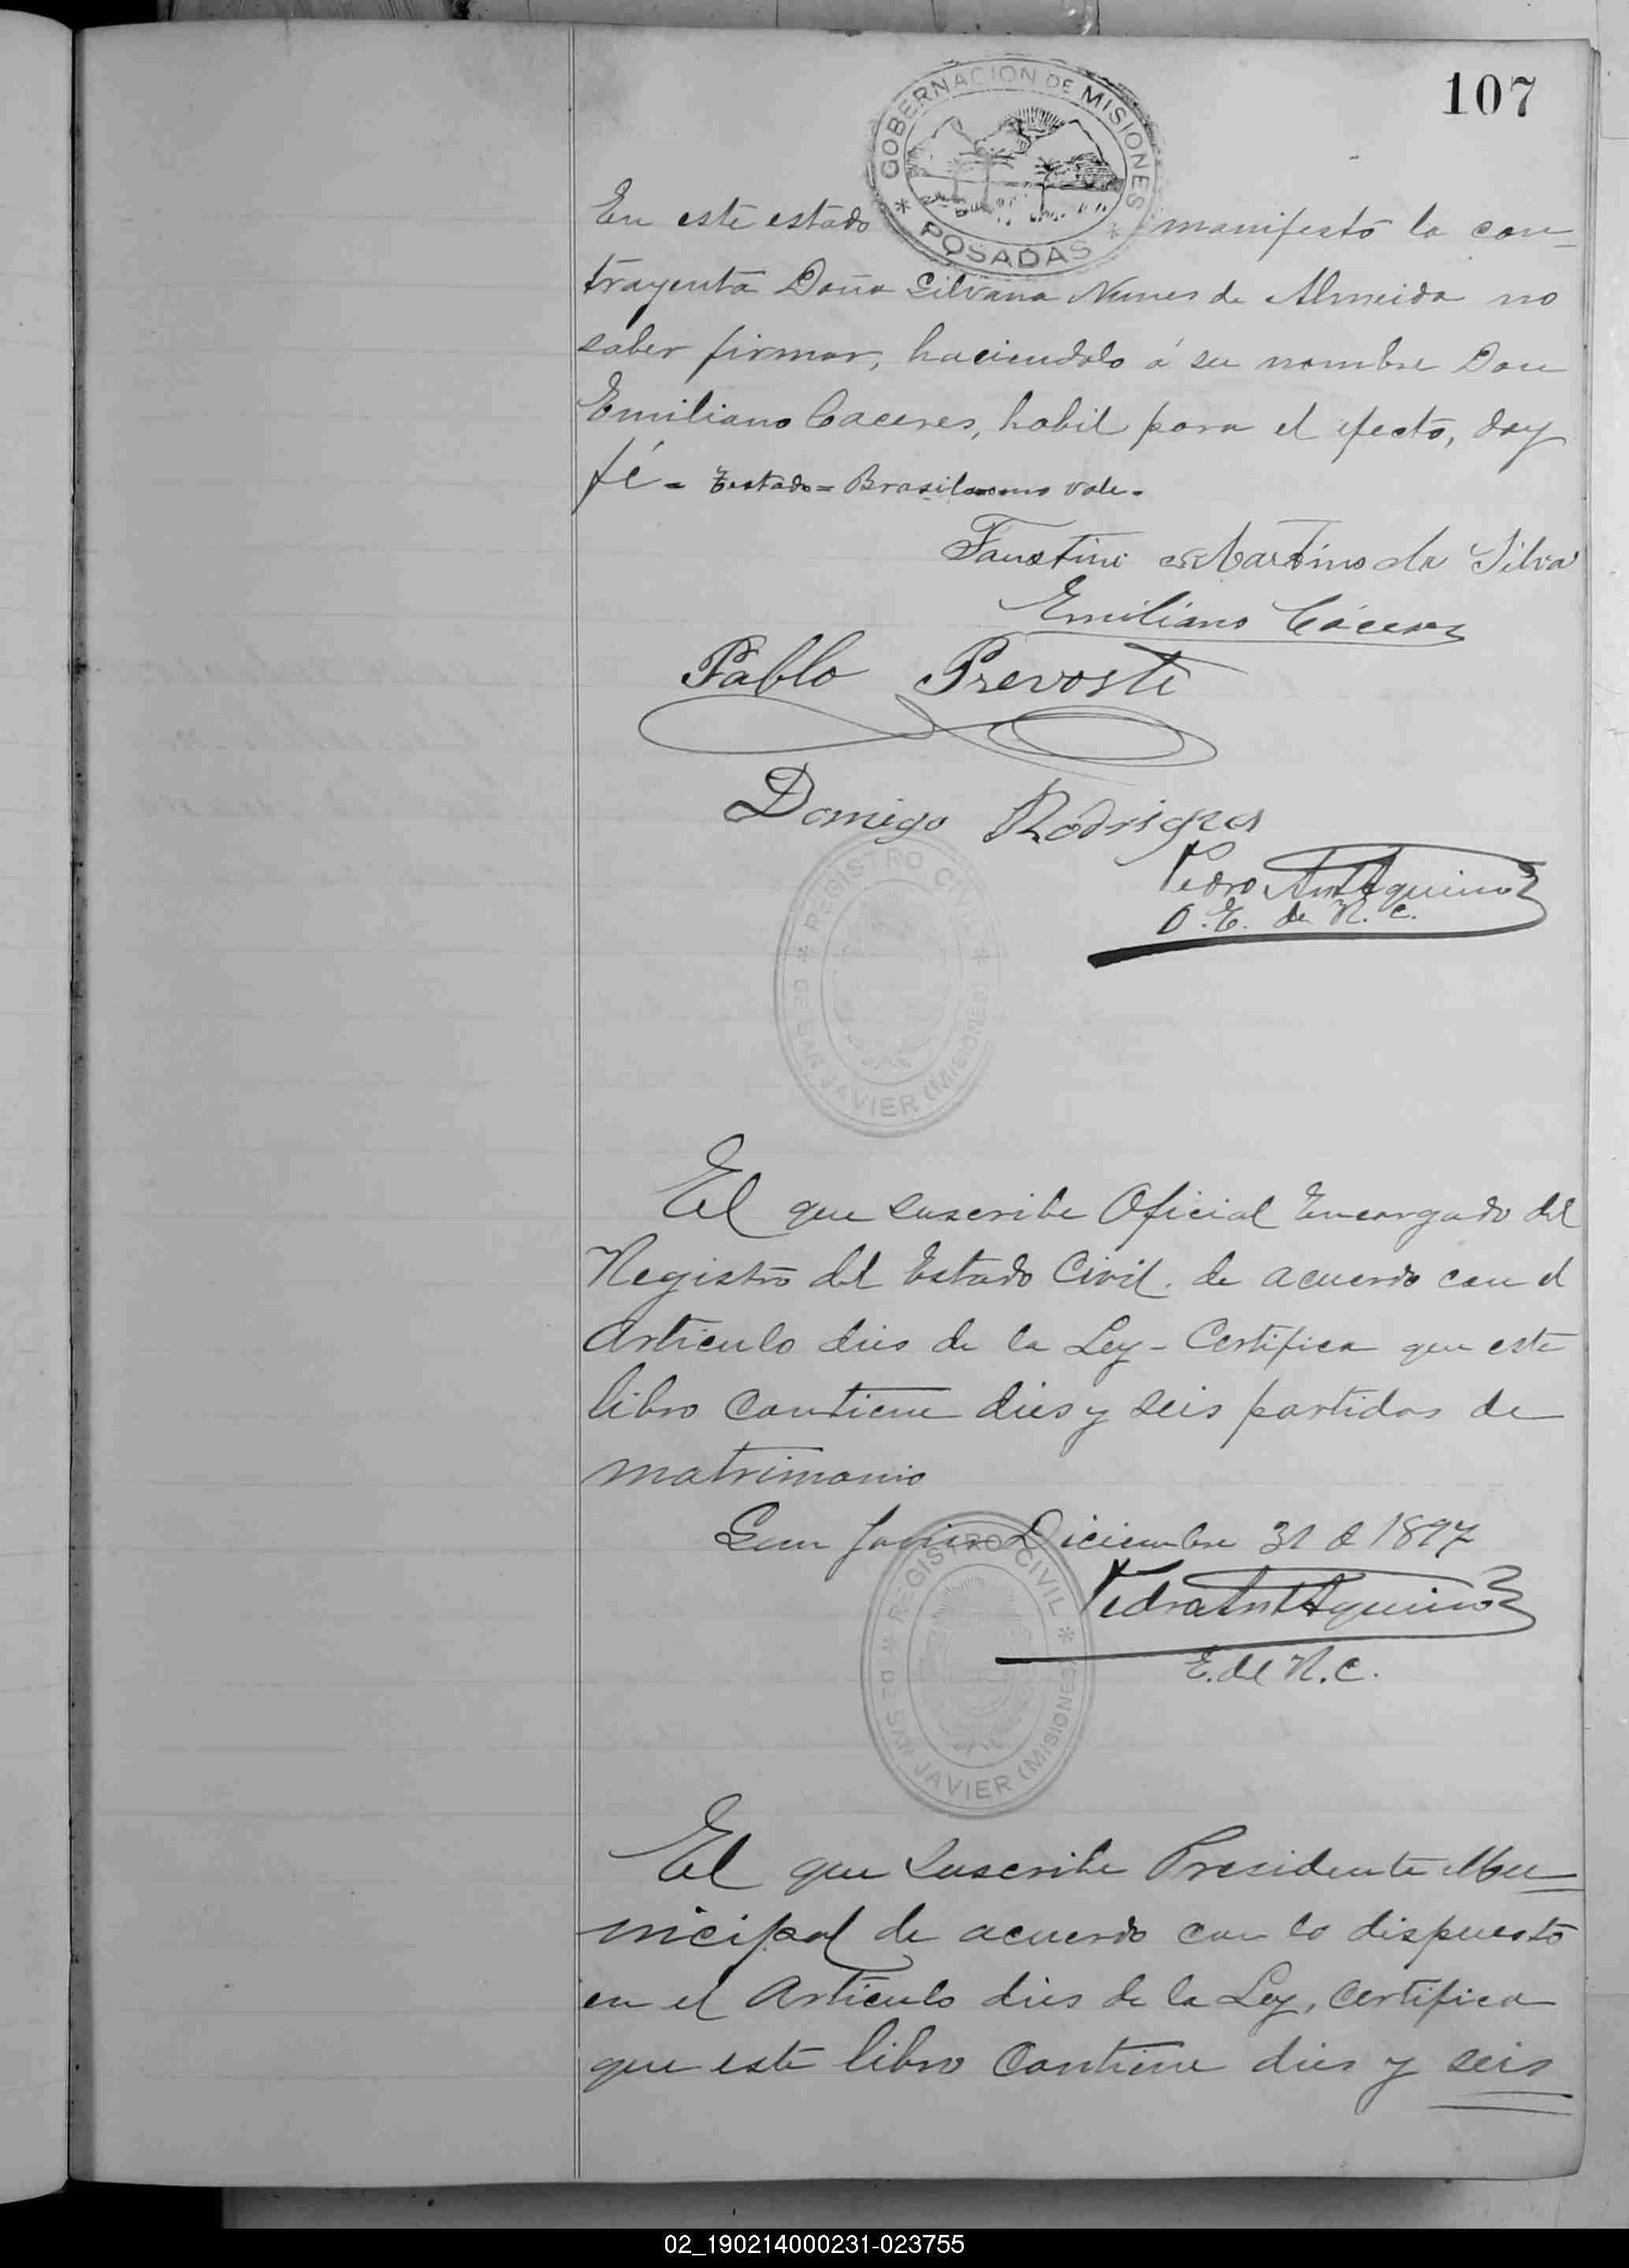 107
GOBERNACION DE MISIONES
* POSADAS *
En este estado manifestó la con-
trayenta Doña Silvana Nunes de Almeida no
saber firmar, haciendolo á su nombre Don
Emiliano Caceres, habil para el efecto, doy
fé = Testado = Brasil no vale.
Faustino Martins da Silva
Emiliano Cáceres
Pablo Prevosti
Domigo Rodrigues
Pedro Ant Aquino
O. E. de R. C.
* REGISTRO CIVIL *
DE SAN JAVIER (MISIONES)
El que suscribe Oficial Encargado del
Registro del Estado Civil. de acuerdo con el
Articulo dies de la Ley - Certifica que este
libro contiene dies y seis partidas de
matrimonio
San Javier Diciembre 31 de 1897
Pedro Ant Aquino
E. del R. C.
* REGISTRO CIVIL *
DE SAN JAVIER (MISIONES)
El que suscribe Presidente Mu=
nicipal de acuerdo con lo dispuesto
en el Articulo dies de la Ley, Certifica
que este libro contiene dies y seis
02_190214000231-023755